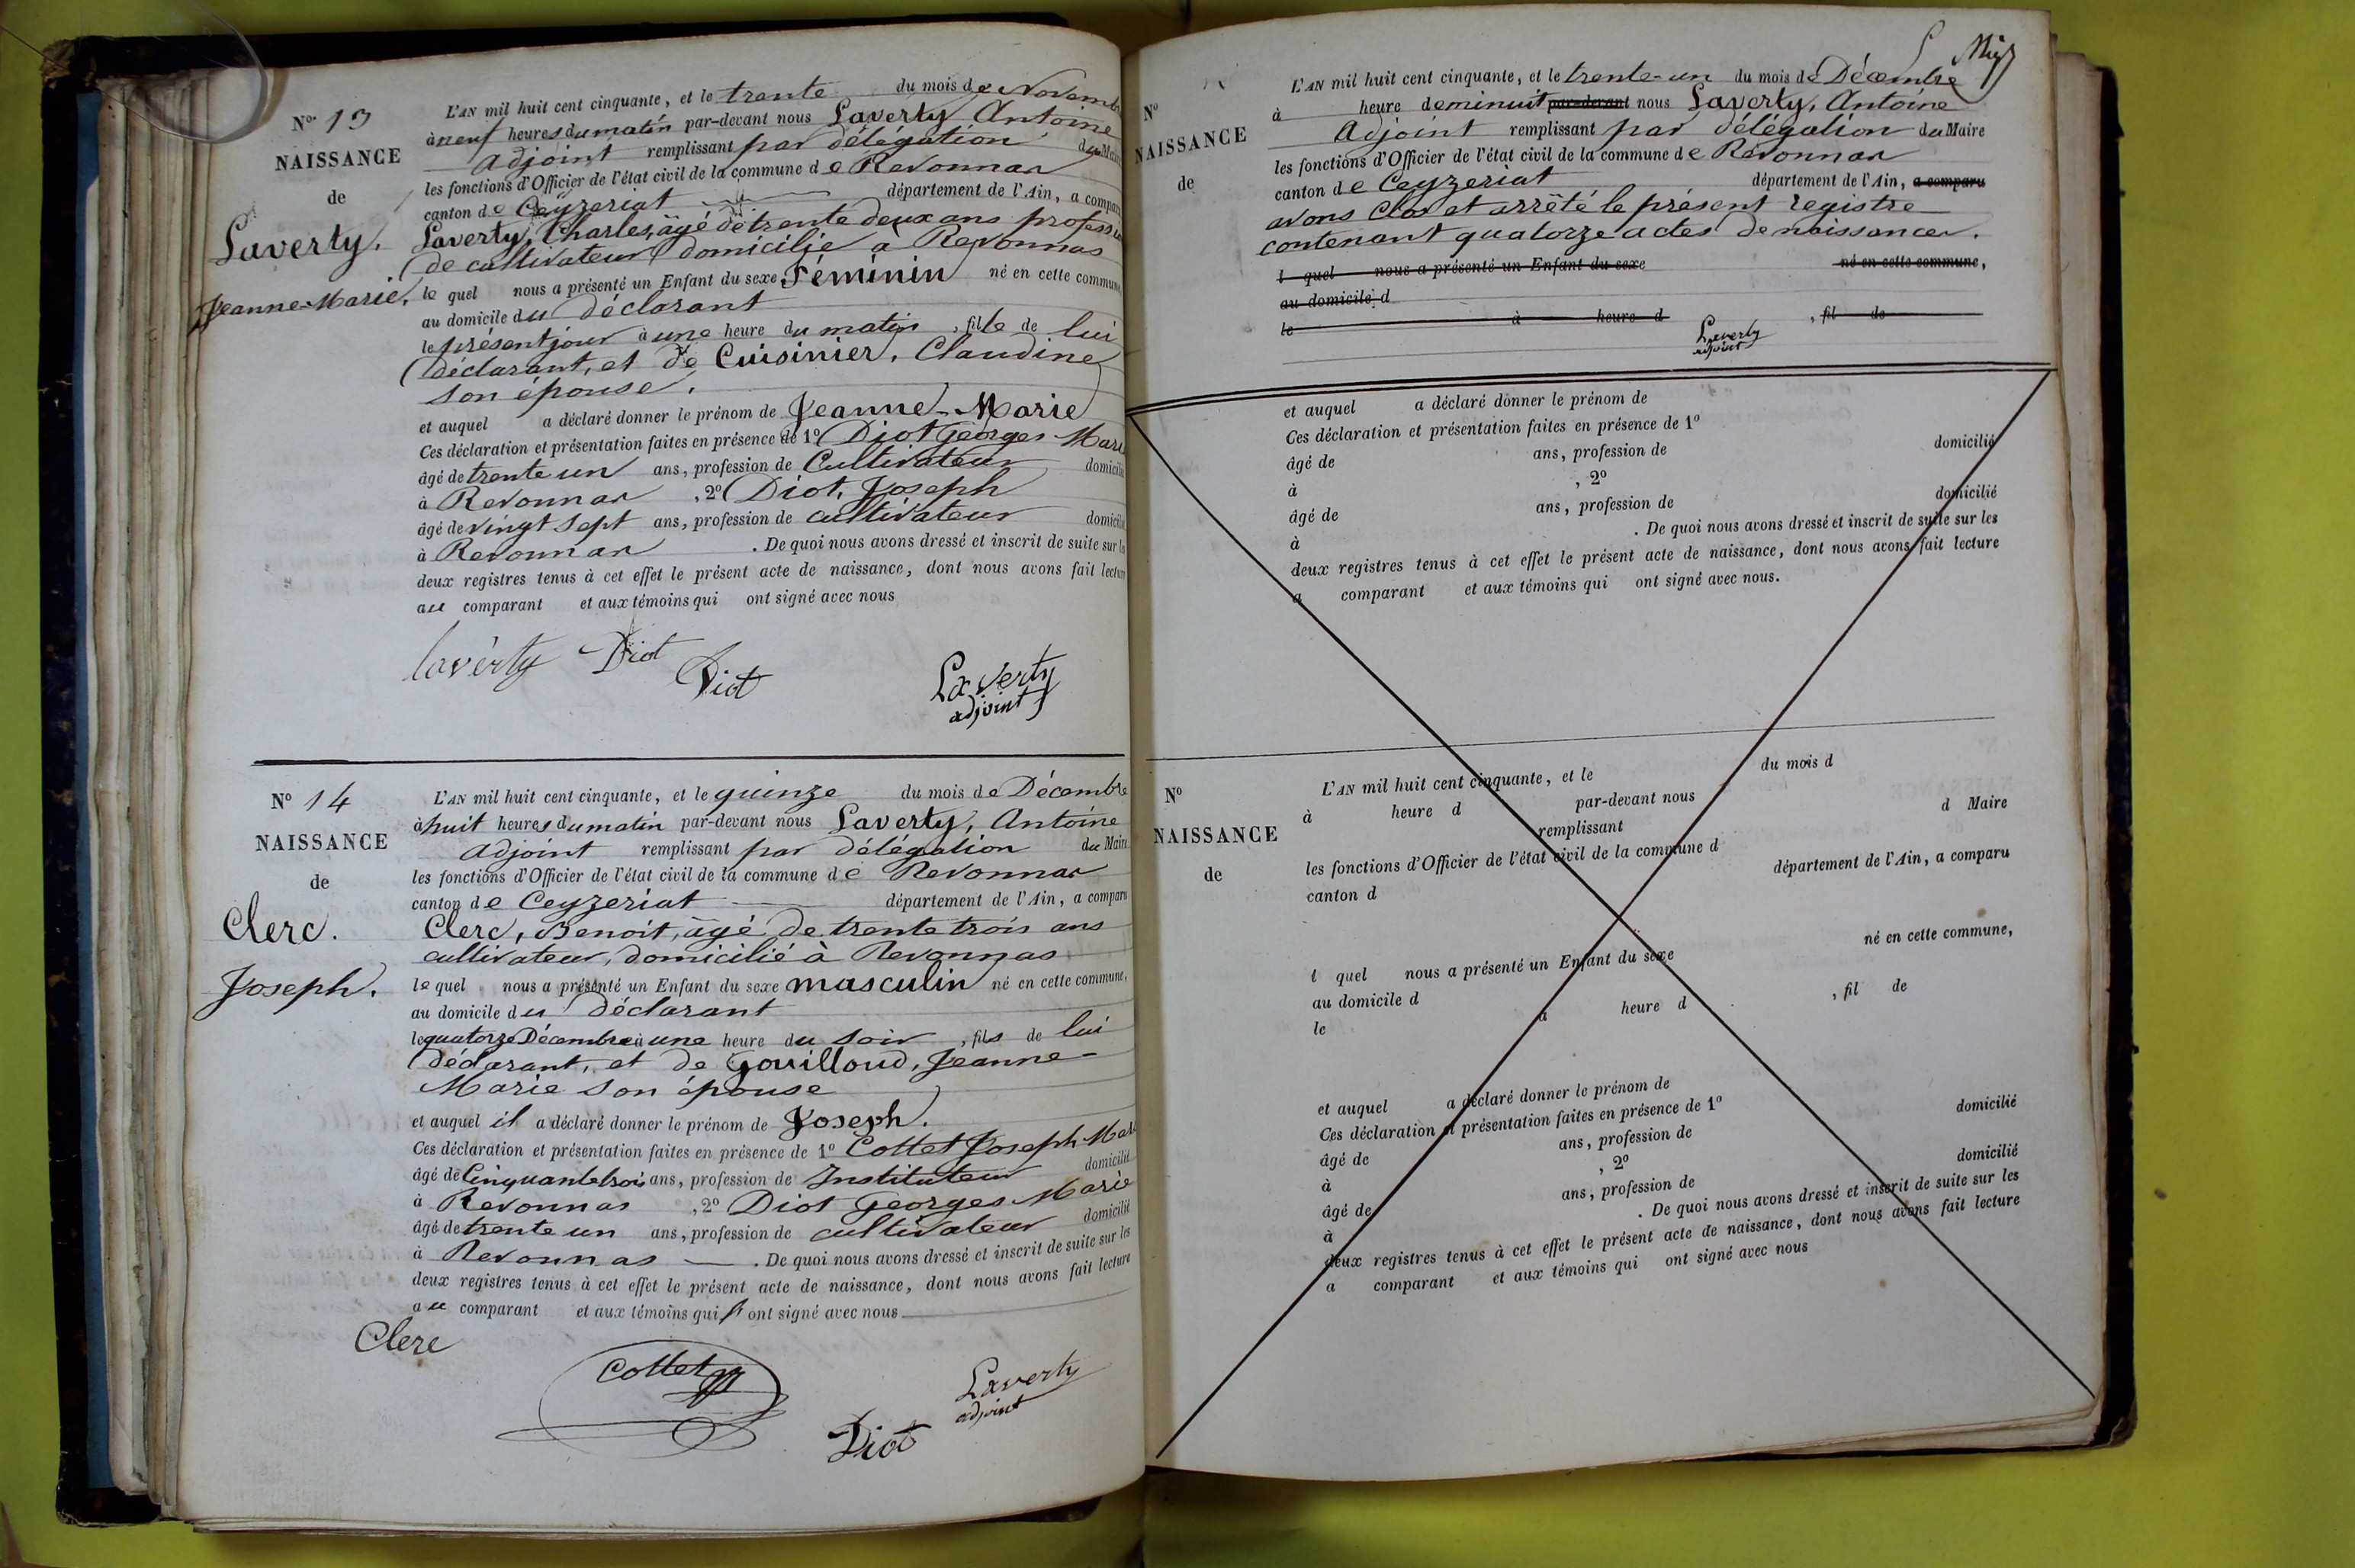 N° 13
NAISSANCE
de
Laverty.
Jeanne-Marie.
L'AN mil huit cent cinquante, et le trente du mois de Novembre
à neuf heures du matin par-devant nous Laverty Antoine
Adjoint remplissant par délégation du Maire
les fonctions d'Officier de l'état civil de la commune de Revonnas
canton de Ceyzeriat département de l'Ain, a comparu
Laverty, Charles, âgé de trente deux ans profession
de cultivateur domicilié a Revonnas
lequel nous a présenté un Enfant du sexe Féminin né en cette commune,
au domicile du déclarant
le présent jour à une heure du matin, fille de lui
déclarant, et de Cuisinier, Claudine
son épouse.
et auquel a déclaré donner le prénom de Jeanne-Marie
Ces déclaration et présentation faites en présence de 1° Diot Georges Marie
âgé de trente un ans, profession de Cultivateur domicilié
à Revonnas, 2° Diot, Joseph
âgé de vingt sept ans, profession de cultivateur domicilié
à Revonnas. De quoi nous avons dressé et inscrit de suite sur les
deux registres tenus à cet effet le présent acte de naissance, dont nous avons fait lecture
au comparant et aux témoins qui ont signé avec nous
laverty Diot
Diot
Laverty
adjoint
N° 14
NAISSANCE
de
Clerc.
Joseph.
L'AN mil huit cent cinquante, et le quinze du mois de Décembre
à huit heures du matin par-devant nous Laverty, Antoine
Adjoint remplissant par délégation du Maire
les fonctions d'Officier de l'état civil de la commune de Revonnas
canton de Ceyzeriat département de l'Ain, a comparu
Clerc, Benoit, âgé de trente trois ans
cultivateur, domicilié à Revonnas
lequel nous a présenté un Enfant du sexe masculin né en cette commune,
au domicile du déclarant
le quatorze Décembre à une heure du soir, fils de lui
déclarant, et de Gouilloud, Jeanne-
Marie son épouse
et auquel il a déclaré donner le prénom de Joseph.
Ces déclaration et présentation faites en présence de 1° Cottet Joseph Marie
âgé de Cinquante trois ans, profession de Instituteur domicilié
à Revonnas, 2° Diot Georges Marie
âgé de trente un ans, profession de cultivateur domicilié
à Revonnas. De quoi nous avons dressé et inscrit de suite sur les
deux registres tenus à cet effet le présent acte de naissance, dont nous avons fait lecture
au comparant et aux témoins qui ont signé avec nous
Clerc
Cottet
Laverty
adjoint
Diot
N°
NAISSANCE
de
L'AN mil huit cent cinquante, et le trente-un du mois de Décembre
à heure de minuit par-devant nous Laverty, Antoine
Adjoint remplissant par délégation du Maire
les fonctions d'Officier de l'état civil de la commune de Revonnas
canton de Ceyzeriat département de l'Ain, a comparu
avons Clos et arrêté le présent registre
contenant quatorze actes de naissances.
l quel nous a présenté un Enfant du sexe né en cette commune,
au domicile d
le à heure d , fil de
Laverty
adjoint
et auquel a déclaré donner le prénom de
Ces déclaration et présentation faites en présence de 1°
âgé de ans, profession de domicilié
à , 2°
âgé de ans, profession de domicilié
à . De quoi nous avons dressé et inscrit de suite sur les
deux registres tenus à cet effet le présent acte de naissance, dont nous avons fait lecture
a comparant et aux témoins qui ont signé avec nous.
N°
NAISSANCE
de
L'AN mil huit cent cinquante, et le du mois d
à heure d par-devant nous
remplissant d Maire
les fonctions d'Officier de l'état civil de la commune d
canton d département de l'Ain, a comparu
l quel nous a présenté un Enfant du sexe né en cette commune,
au domicile d
le à heure d , fil de
et auquel a déclaré donner le prénom de
Ces déclaration et présentation faites en présence de 1°
âgé de ans, profession de domicilié
à , 2°
âgé de ans, profession de domicilié
à . De quoi nous avons dressé et inscrit de suite sur les
deux registres tenus à cet effet le présent acte de naissance, dont nous avons fait lecture
a comparant et aux témoins qui ont signé avec nous